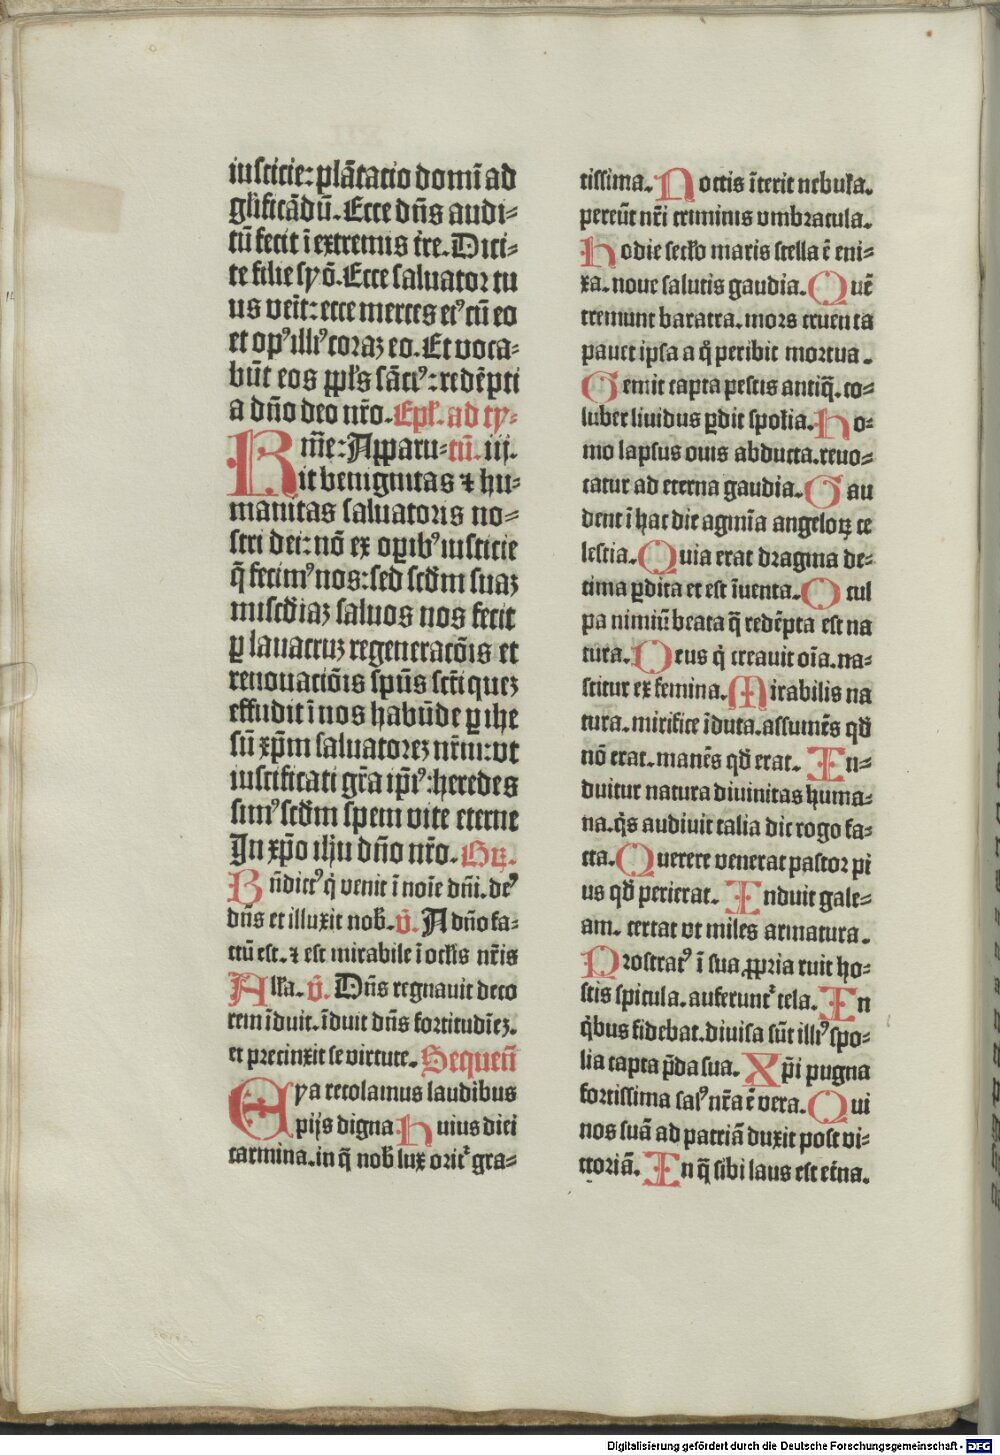 iusticie: plãtatio domĩ ad
glificãdũ. Ecce dñs audi⸗
tũ fecit ĩ extremis tre. Dici⸗
te filie syõ. Ecce saluator tu
us veñt: ecce merces eiꝰ cũ eo
et opꝰ illiꝰ coraz eo. Et voca⸗
bũt eos ppłs sãctꝰ: redẽpti
a dño deo nr̃o. Epł. ad ty⸗
Rm̃e: Apparu⸗ tũ. iij.
it benignitas ⁊ hu⸗
manitas saluatoris no⸗
stri dei: nõ ex oꝑibꝰ iusticie
q̃ fecimꝰ nos: sed scd̃m suaz
miscd̃iaz saluos nos fecit
ꝑ lauacruz regeneratõis et
renouatiõis spũs sct̃i quez
effudit ĩ nos habũde ꝑ ihe
sũ xp̃m saluatorez nr̃m: vt
iustificati gr̃a ip̃iꝰ: heredes
simꝰ scd̃m spem vite eterne
In xp̃o ihu dño nr̃o. Gꝶ.
Bñdictꝰ q̇ venit ĩ noĩe dñi. deꝰ
dñs et illuxit nob̃. v̇. A dño fa⸗
ctũ est. ⁊ est mirabile ĩ oclis nr̃is
Alla. v̇. Dñs regnauit deco
rem ĩduit. ĩduit dñs fortitudĩez.
et precinxit se virtute. Sequeñ
Eya recolamus laudibus
pijs digna Huius diei
carmina. in q̃ nob̃ lux oritᷣ gra⸗
tissima. Noctis ĩterit nebula.
pereũt nr̃i criminis vmbracula.
Hodie seclo maris stella ẽ eni⸗
xa. noue salutis gaudia. Quẽ
tremunt baratra. mors cruenta
pauet ipsa a q̊ peribit mortua.
Gemit capta pestis antiq̃. co⸗
luber liuidus ꝑdit spolia. Ho⸗
mo lapsus ouis abducta. reuo⸗
catur ad eterna gaudia. Gau
dent ĩ hac die agmĩa angeloꝝ ce
lestia. Quia erat dragma de⸗
cima ꝑdita et est ĩuenta. O cul
pa nimiũ beata q̃ redẽpta est na
tura. Deus q̇ creauit oĩa. na⸗
scitur ex femina. Mirabilis na
tura. mirifice ĩduta. assumẽs qd̃
nõ erat. manẽs qd̃ erat. In⸗
duitur natura diuinitas huma⸗
na. q̇s audiuit talia dic rogo fa⸗
cta. Querere venerat pastor pi
us qd̃ perierat. Induit gale⸗
am. certat vt miles armatura.
Prostratꝰ ĩ sua ꝓpria ruit ho⸗
stis spicula. auferuntᷣ tela. In
q̇bus fidebat. diuisa sũt illiꝰ spo⸗
lia capta p̃da sua. Xp̃i pugna
fortissima salꝰ nr̃a ẽ vera. Qui
nos suã ad patriã duxit post vi⸗
ctoriã. In q̃ sibi laus est et̃na.
Digitalisierung gefördert durch die Deutsche Forschungsgemeinschaft - DFG